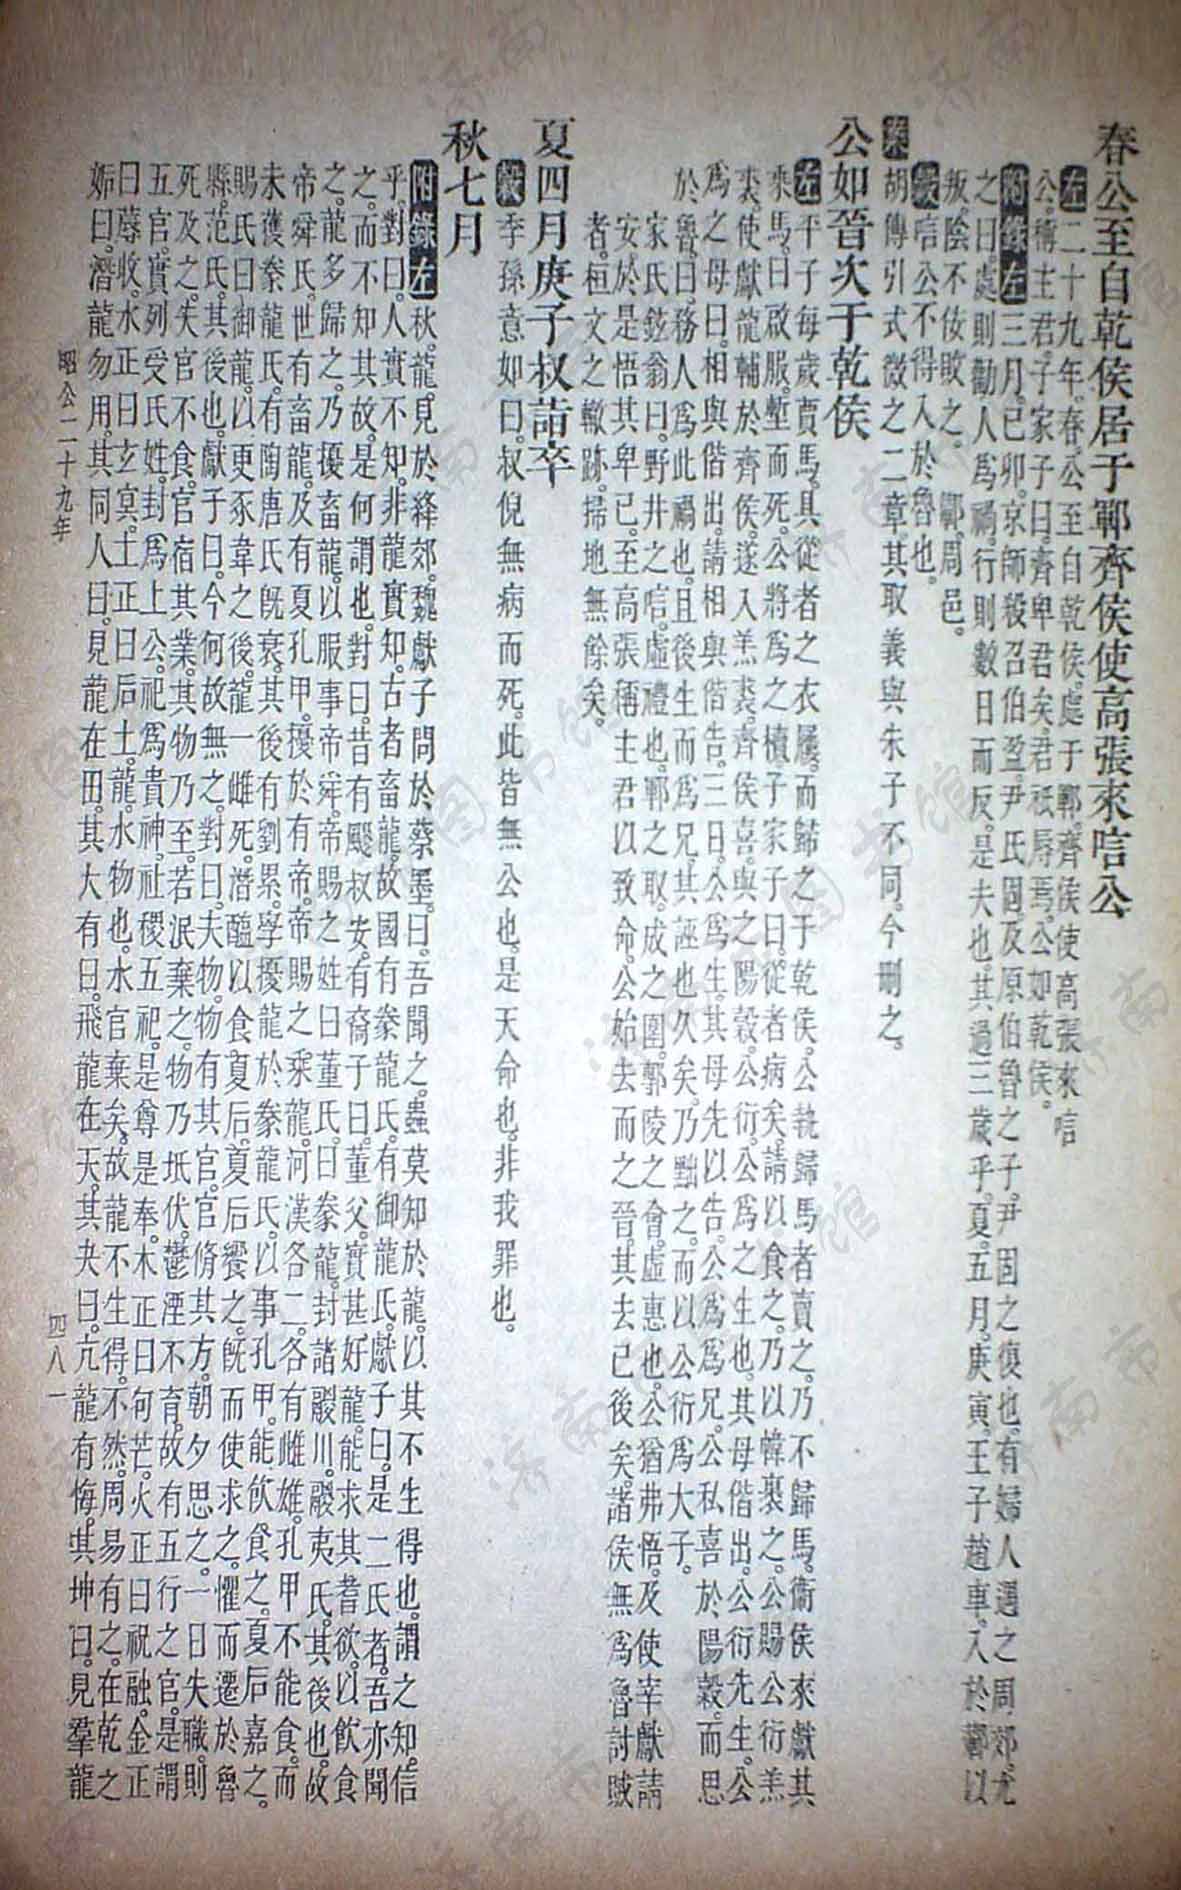 春公至自乾侯居于鄆齊侯使高張來唁公
左二十九年。春。公至自乾侯。處于鄆。齊侯使高張來唁
公。稱主君。子家子曰。齊卑君矣。君祇辱焉。公如乾侯。
附錄左三月。己卯。京師殺召伯盈。尹氏固及原伯魯之子。尹固之復也。有婦人遇之周郊。尤
之曰。處則勸人爲禍。行則數日而反。是夫也。其過三歲乎。夏。五月。庚寅。王子趙車。入於鄻以
叛。陰不佞敗之。鄻。周邑。
穀唁公不得入於魯也。
案胡傳引式微之二章。其取義與朱子不同。今刪之。
公如晉次于乾侯
左平子每歲賈馬。具從者之衣屨。而歸之于乾侯。公執歸馬者賣之。乃不歸馬。衞侯來獻其
乘馬。曰啟服。塹而死。公將爲之櫝。子家子曰。從者病矣。請以食之。乃以幃裹之。公賜公衍羔
裘。使獻龍輔於齊侯。遂入羔裘。齊侯喜。與之陽穀。公衍。公爲之生也。其母偕出。公衍先生。公
爲之母曰。相與偕出。請相與偕告。三日。公爲生。其母先以告。公爲爲兄。公私喜於陽穀。而思
於魯。曰。務人爲此禍也。且後生而爲兄。其誣也久矣。乃黜之。而以公衍爲大子。
家氏鉉翁曰。野井之唁。虛禮也。鄆之取。成之圍。郭陵之會。虛惠也。公猶弗悟。及使幸獻請
安。於是悟其卑己。至高張稱主君以致命。公始去而之晉。其去已後矣。諸侯無爲魯討賊
者。桓文之轍跡。掃地無餘矣。
夏四月庚子叔詣卒
穀季孫意如曰。叔倪無病而死。此皆無公也。是天命也。非我罪也。
秋七月
附錄左秋。龍見於絳郊。魏獻子問於蔡墨。曰。吾聞之。蟲莫知於龍。以其不生得也。謂之知。信
乎。對曰。人實不知。非龍實知。古者畜龍。故國有豢龍氏。有御龍氏。獻子曰。是二氏者。吾亦聞
之。而不知其故。是何謂也。對曰。昔有飂叔安。有裔子曰。董父。實甚好龍。能求其耆欲。以飲食
之。龍多歸之。乃擾畜龍。以服事帝舜。帝賜之姓曰董。氏曰豢龍。封諸鬷川。鬷夷氏。其後也。故
帝舜氏。世有畜龍。及有夏孔甲。擾於有帝。帝賜之乘龍。河漢各二。各有雌雄。孔甲不能食。而
未獲豢龍氏。有陶唐氏既衰。其後有劉累。學擾龍於豢龍氏。以事孔甲。能飲食之。夏后嘉之。
賜氏曰御龍。以更豕韋之後。龍一雌死。潛醢以食夏后。夏后饗之。既而使求之。懼而遷於魯
縣。范氏。其後也。獻子曰。今何故無之。對曰。夫物。物有其官。官脩其方。朝夕思之。一日失職。則
死及之。失官不食。官宿其業。其物乃至。若泯棄之。物乃坻伏。鬱湮不育。故有五行之官。是謂
五官。實列受氏姓。封爲上公。祀爲貴神。社稷五祀。是尊是奉。木正曰句芒。火正曰祝融。金正
曰蓐收。水正曰玄冥。土正曰后土。龍。水物也。水官棄矣。故龍不生得。不然。周易有之。在乾之
姤曰。潛龍勿用。其同人曰。見龍在田。其大有曰。飛龍在天。其夬曰。亢龍有悔。其坤曰。見羣龍
昭公二十九年
四八一